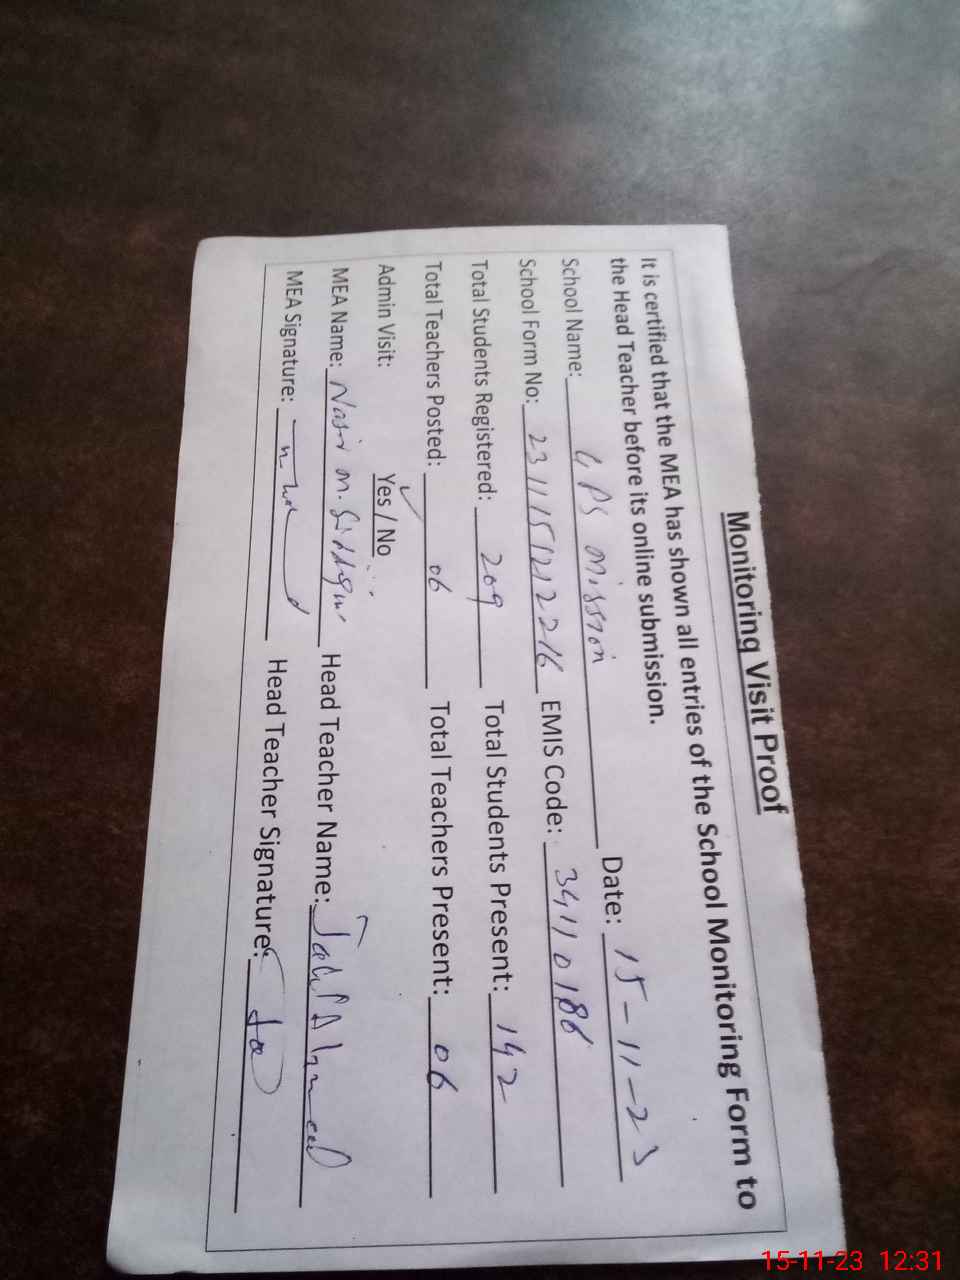 Monitoring Visit Proof
It is certified that the MEA has shown all entries of the School Monitoring Form to
the Head Teacher before its online submission.
School Name: GPS Mission Date: 15-11-23
School Form No: EMIS Code: 34110186
Total Students Registered: 209 Total Students Present: 142
Total Teachers Posted: 06 Total Teachers Present: 06
Admin Visit: Yes / No
MEA Name: Nasir M. Head Teacher Name: Ahmed
MEA Signature: Head Teacher Signature:
15-11-23 12:31